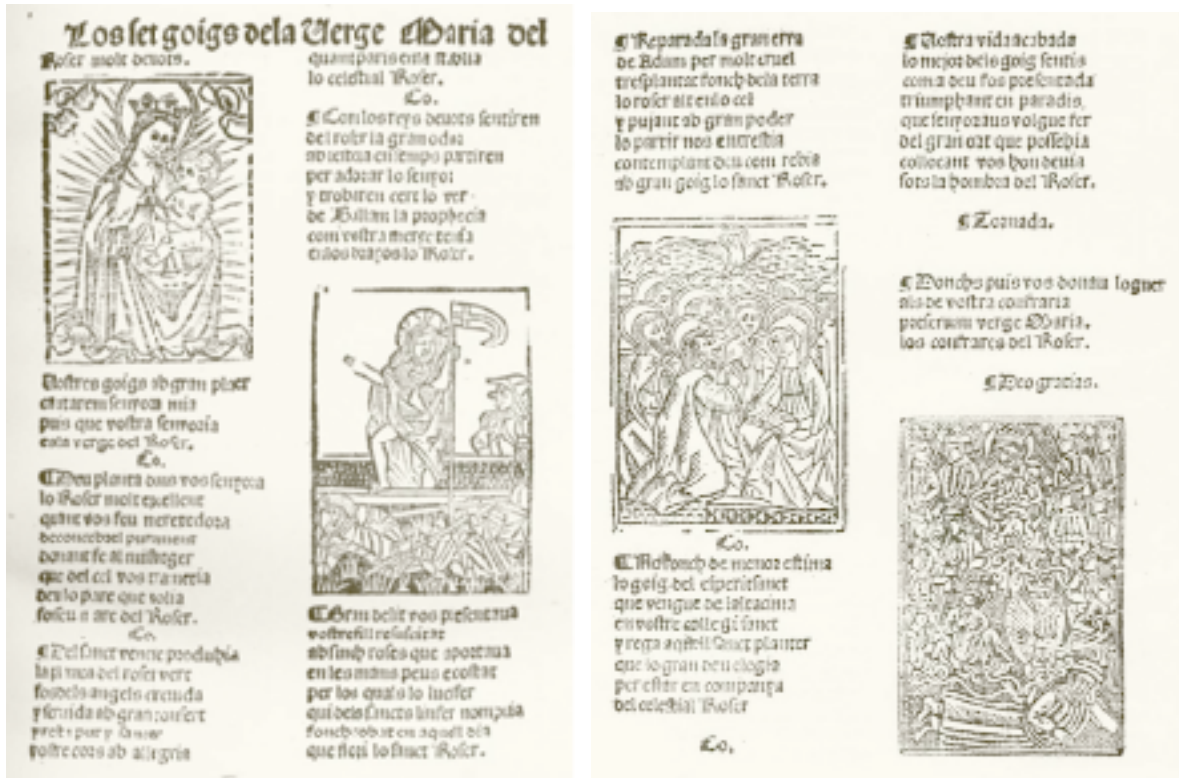 Los set goigs dela Verge Maria del
Roser molt deuots.
Vostres goigs ab gran plaer
cantarem senyora mia
puis que vostra senyoria
es la verge del Roser.
Co.
Deu planta dins vos senyora
lo Roser molt excellent
quant vos feu mereixedora
de concebrel purament
donant fe al missatger
que del cel vos trametia
deu lo pare que volia
fosseu mare del Roser.
Co.
Del sanct ventre produhia
la planta del roser vert
fos dels angels
y seruida ab gran concert
y
vostre cors ab allegria
quant paris
lo celestial Roser.
Co.
Con los reys deuots sentiren
del roser la gran odor
temps partiren
per adorar lo senyor
y trobaren cert lo ver
de Balam la prophecia
com vostra merce tenia
en los braços lo Roser.
Gran delit vos presentaua
vostre fill resuscitat
ab sinch roses que aportaua
en les mans peus e costat
per les quals lo lucifer
qui dels sancts
fonch robat en aquell dia
que flori lo sanct Roser.
Reparada la gran erra
de Adam per molt cruel
tresplantat fonch dela terra
lo roser alt en lo cel
y pujant ab gran poder
lo partir nos entrestia
contemplant deu com rebia
ab gran goig lo sanct Roser.
Co.
No fonch de menor estima
lo goig del esperit sanct
que vengue de
en vostre collegi sanct
y rega aquell sanct planter
que lo gran deu elegia
per estar en companya
del celestial Roser
Co.
Vostra vida acabada
lo mejor dels goig sentis
com a deu fos presentada
triumphant en paradis,
que senyor aus volgue fer
del gran que possehia
collocant vos hon deuia
sots la hombra del Roser.
Tornada.
Donchs puis vos donau loguer
als de vostra confraria
preseruau verge Maria.
los confrares del Roser.
Deo gracias.